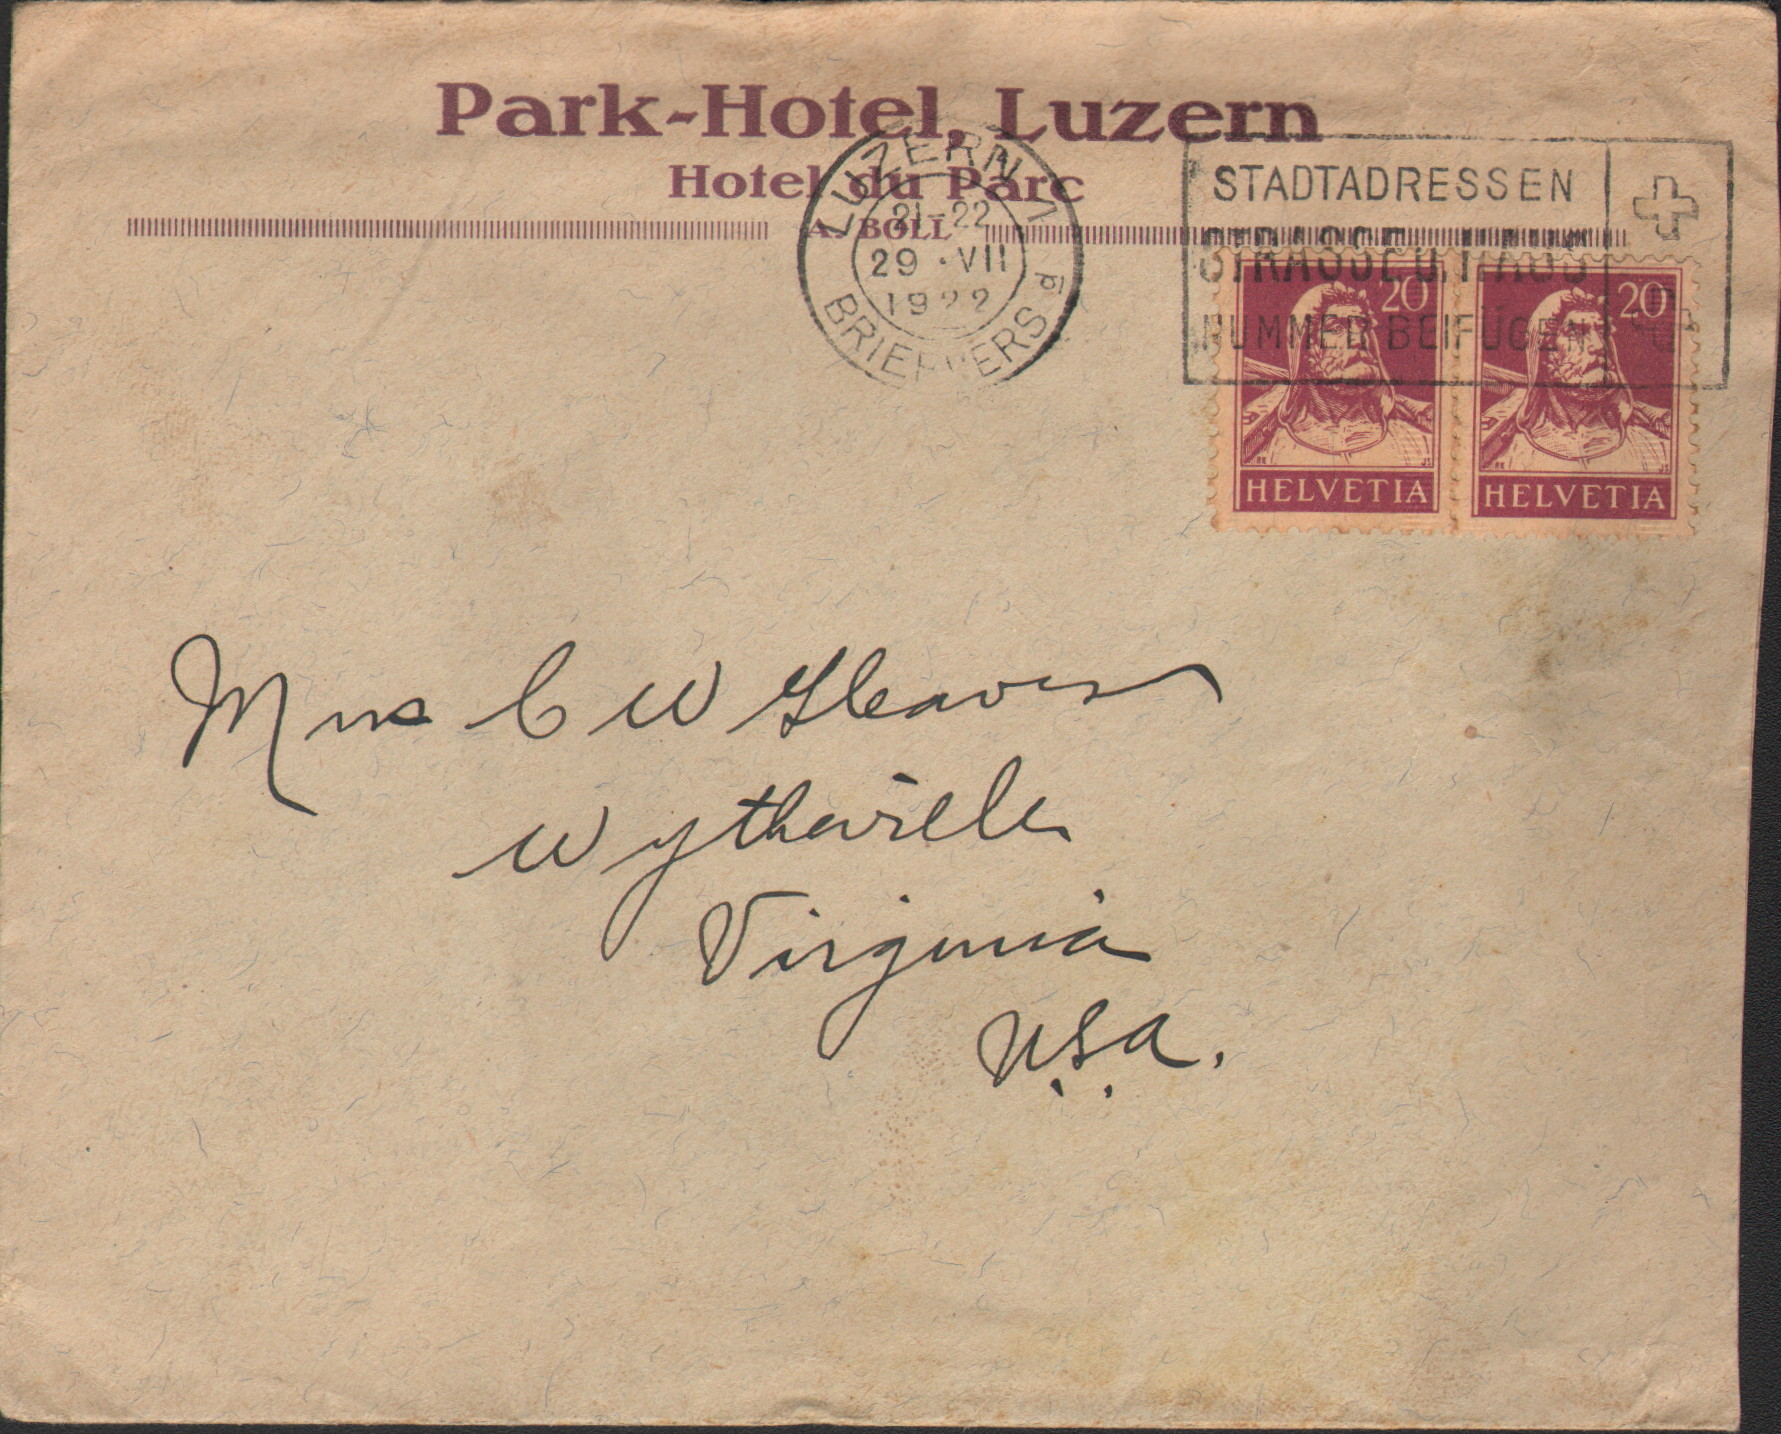 Park-Hotel, Luzern
Hotel du Parc
A. BOLL
LUZERN 1
21-22
29·VII
1922
BRIEFVERS
STADTADRESSEN
STRASSE U. HAUS
NUMMER BEIFÜGEN
20
20
HELVETIA
HELVETIA
Mrs C W Gleaves
Wytheville
Virginia
U.S.A.